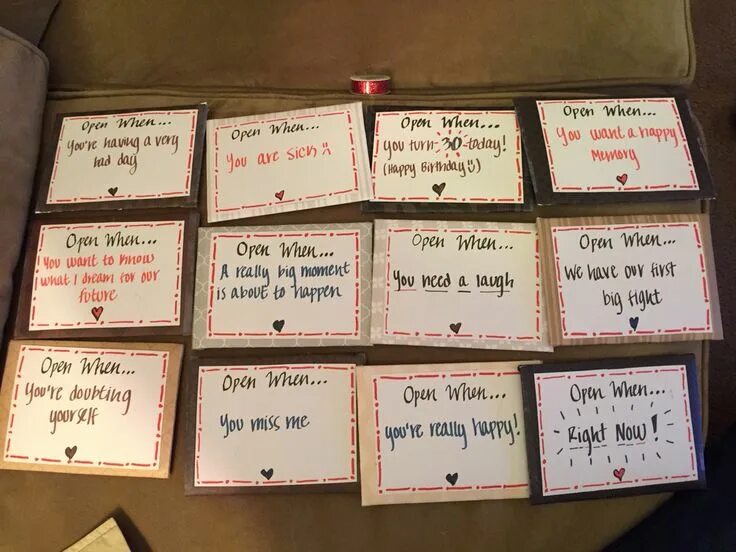 Open When...
You're having a very
bad day
Open When...
You are sick :(
Open When...
you turn 30 today!
(Happy Birthday :))
Open When...
You want a happy
Memory
Open When...
You want to know
what I dream for our
future
Open When...
A really big moment
is about to happen
Open When...
You need a laugh
Open When...
We have our first
big fight
Open When...
You're doubting
yourself
Open When...
You miss me
Open When...
you're really happy!
Open When...
Right Now!